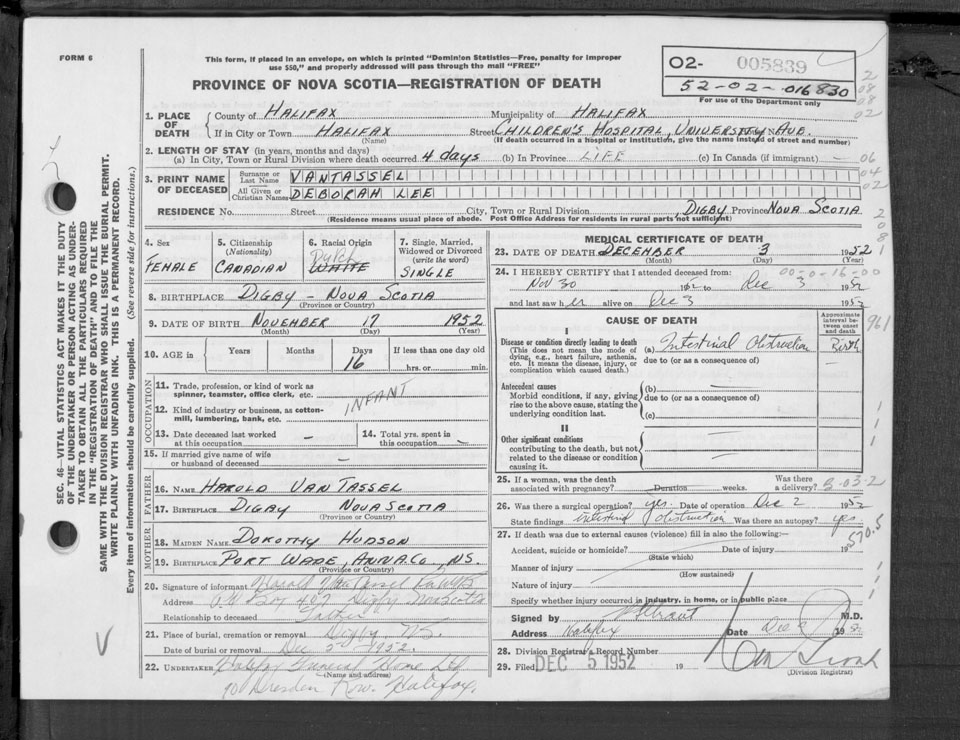 FORM 6
This form, if placed in an envelope, on which is printed "Dominion Statistics—Free, penalty for improper
use $50," and properly addressed will pass through the mail "FREE"
PROVINCE OF NOVA SCOTIA—REGISTRATION OF DEATH
02- 005839
52-02-016830
For use of the Department only
2
08
08
02
1. PLACE OF DEATH
County of HALIFAX Municipality of HALIFAX
If in City or Town HALIFAX Street CHILDREN'S HOSPITAL, UNIVERSITY AVE.
(Name) (If death occurred in a hospital or institution, give the name instead of street and number)
2. LENGTH OF STAY (in years, months and days)
(a) In City, Town or Rural Division where death occurred 4 days (b) In Province LIFE (c) In Canada (if immigrant) —
06
04
02
3. PRINT NAME OF DECEASED
Surname or Last Name VANTASSEL
All Given or Christian Names DEBORAH LEE
RESIDENCE No. Street City, Town or Rural Division DIGBY Province NOVA SCOTIA
(Residence means usual place of abode. Post Office Address for residents in rural parts not sufficient)
4. Sex FEMALE
5. Citizenship (Nationality) CANADIAN
6. Racial Origin Dutch WHITE
7. Single, Married, Widowed or Divorced (write the word) SINGLE
8. BIRTHPLACE DIGBY - NOVA SCOTIA
(Province or Country)
9. DATE OF BIRTH NOVEMBER 17 1952
(Month) (Day) (Year)
10. AGE in Years Months Days 16 If less than one day old hrs. or min.
OCCUPATION
11. Trade, profession, or kind of work as spinner, teamster, office clerk, etc.
INFANT
12. Kind of industry or business, as cotton-mill, lumbering, bank, etc.
13. Date deceased last worked at this occupation —
14. Total yrs. spent in this occupation —
15. If married give name of wife or husband of deceased —
FATHER
16. NAME HAROLD VAN TASSEL
17. BIRTHPLACE DIGBY NOVA SCOTIA
(Province or Country)
MOTHER
18. MAIDEN NAME DOROTHY HUDSON
19. BIRTHPLACE PORT WADE, ANNA. CO. NS.
(Province or Country)
20. Signature of informant Harold Van Tassel
Address P.O. Box 407 Digby Nova Scotia
Relationship to deceased Father
21. Place of burial, cremation or removal Digby NS.
Date of burial or removal Dec 1952.
22. UNDERTAKER Halifax Funeral Home Ltd
(Name and address)
90 Dresden Row. Halifax.
MEDICAL CERTIFICATE OF DEATH
23. DATE OF DEATH DECEMBER 3 1952
(Month) (Day) (Year)
24. I HEREBY CERTIFY that I attended deceased from: 00-0-16-00
Nov 30 1952 to Dec 3 1952
and last saw her alive on Dec 3 1952
CAUSE OF DEATH
Approximate interval between onset and death
961
I
Disease or condition directly leading to death
(This does not mean the mode of dying, e.g., heart failure, asthenia, etc. It means the disease, injury, or complication which caused death.)
(a) Intestinal Obstruction Birth
due to (or as a consequence of)
Antecedent causes
Morbid conditions, if any, giving rise to the above cause, stating the underlying condition last.
(b) —
due to (or as a consequence of)
(c)
II
Other significant conditions
contributing to the death, but not related to the disease or condition causing it.
25. If a woman, was the death associated with pregnancy? Duration weeks. Was there a delivery? B-03-2
26. Was there surgical operation? yes. Date of operation Dec 2 1952
State findings intestinal obstruction Was there an autopsy? yes
570.5
27. If death was due to external causes (violence) fill in also the following:—
Accident, suicide or homicide? Date of injury 195
(State which)
Manner of injury
(How sustained)
Nature of injury
Specify whether injury occurred in industry, in home, or in public place
Signed by M.D.
Address Halifax Date Dec 1952
28. Division Registrar's Record Number
29. Filed DEC 5 1952 19
(Division Registrar)
SEC. 46—VITAL STATISTICS ACT MAKES IT THE DUTY
OF THE UNDERTAKER OR PERSON ACTING AS UNDER-
TAKER TO OBTAIN ALL THE PARTICULARS REQUIRED
IN THE "REGISTRATION OF DEATH" AND TO FILE THE
SAME WITH THE DIVISION REGISTRAR WHO SHALL ISSUE THE BURIAL PERMIT.
WRITE PLAINLY WITH UNFADING INK. THIS IS A PERMANENT RECORD.
Every item of information should be carefully supplied. (See reverse side for instructions.)